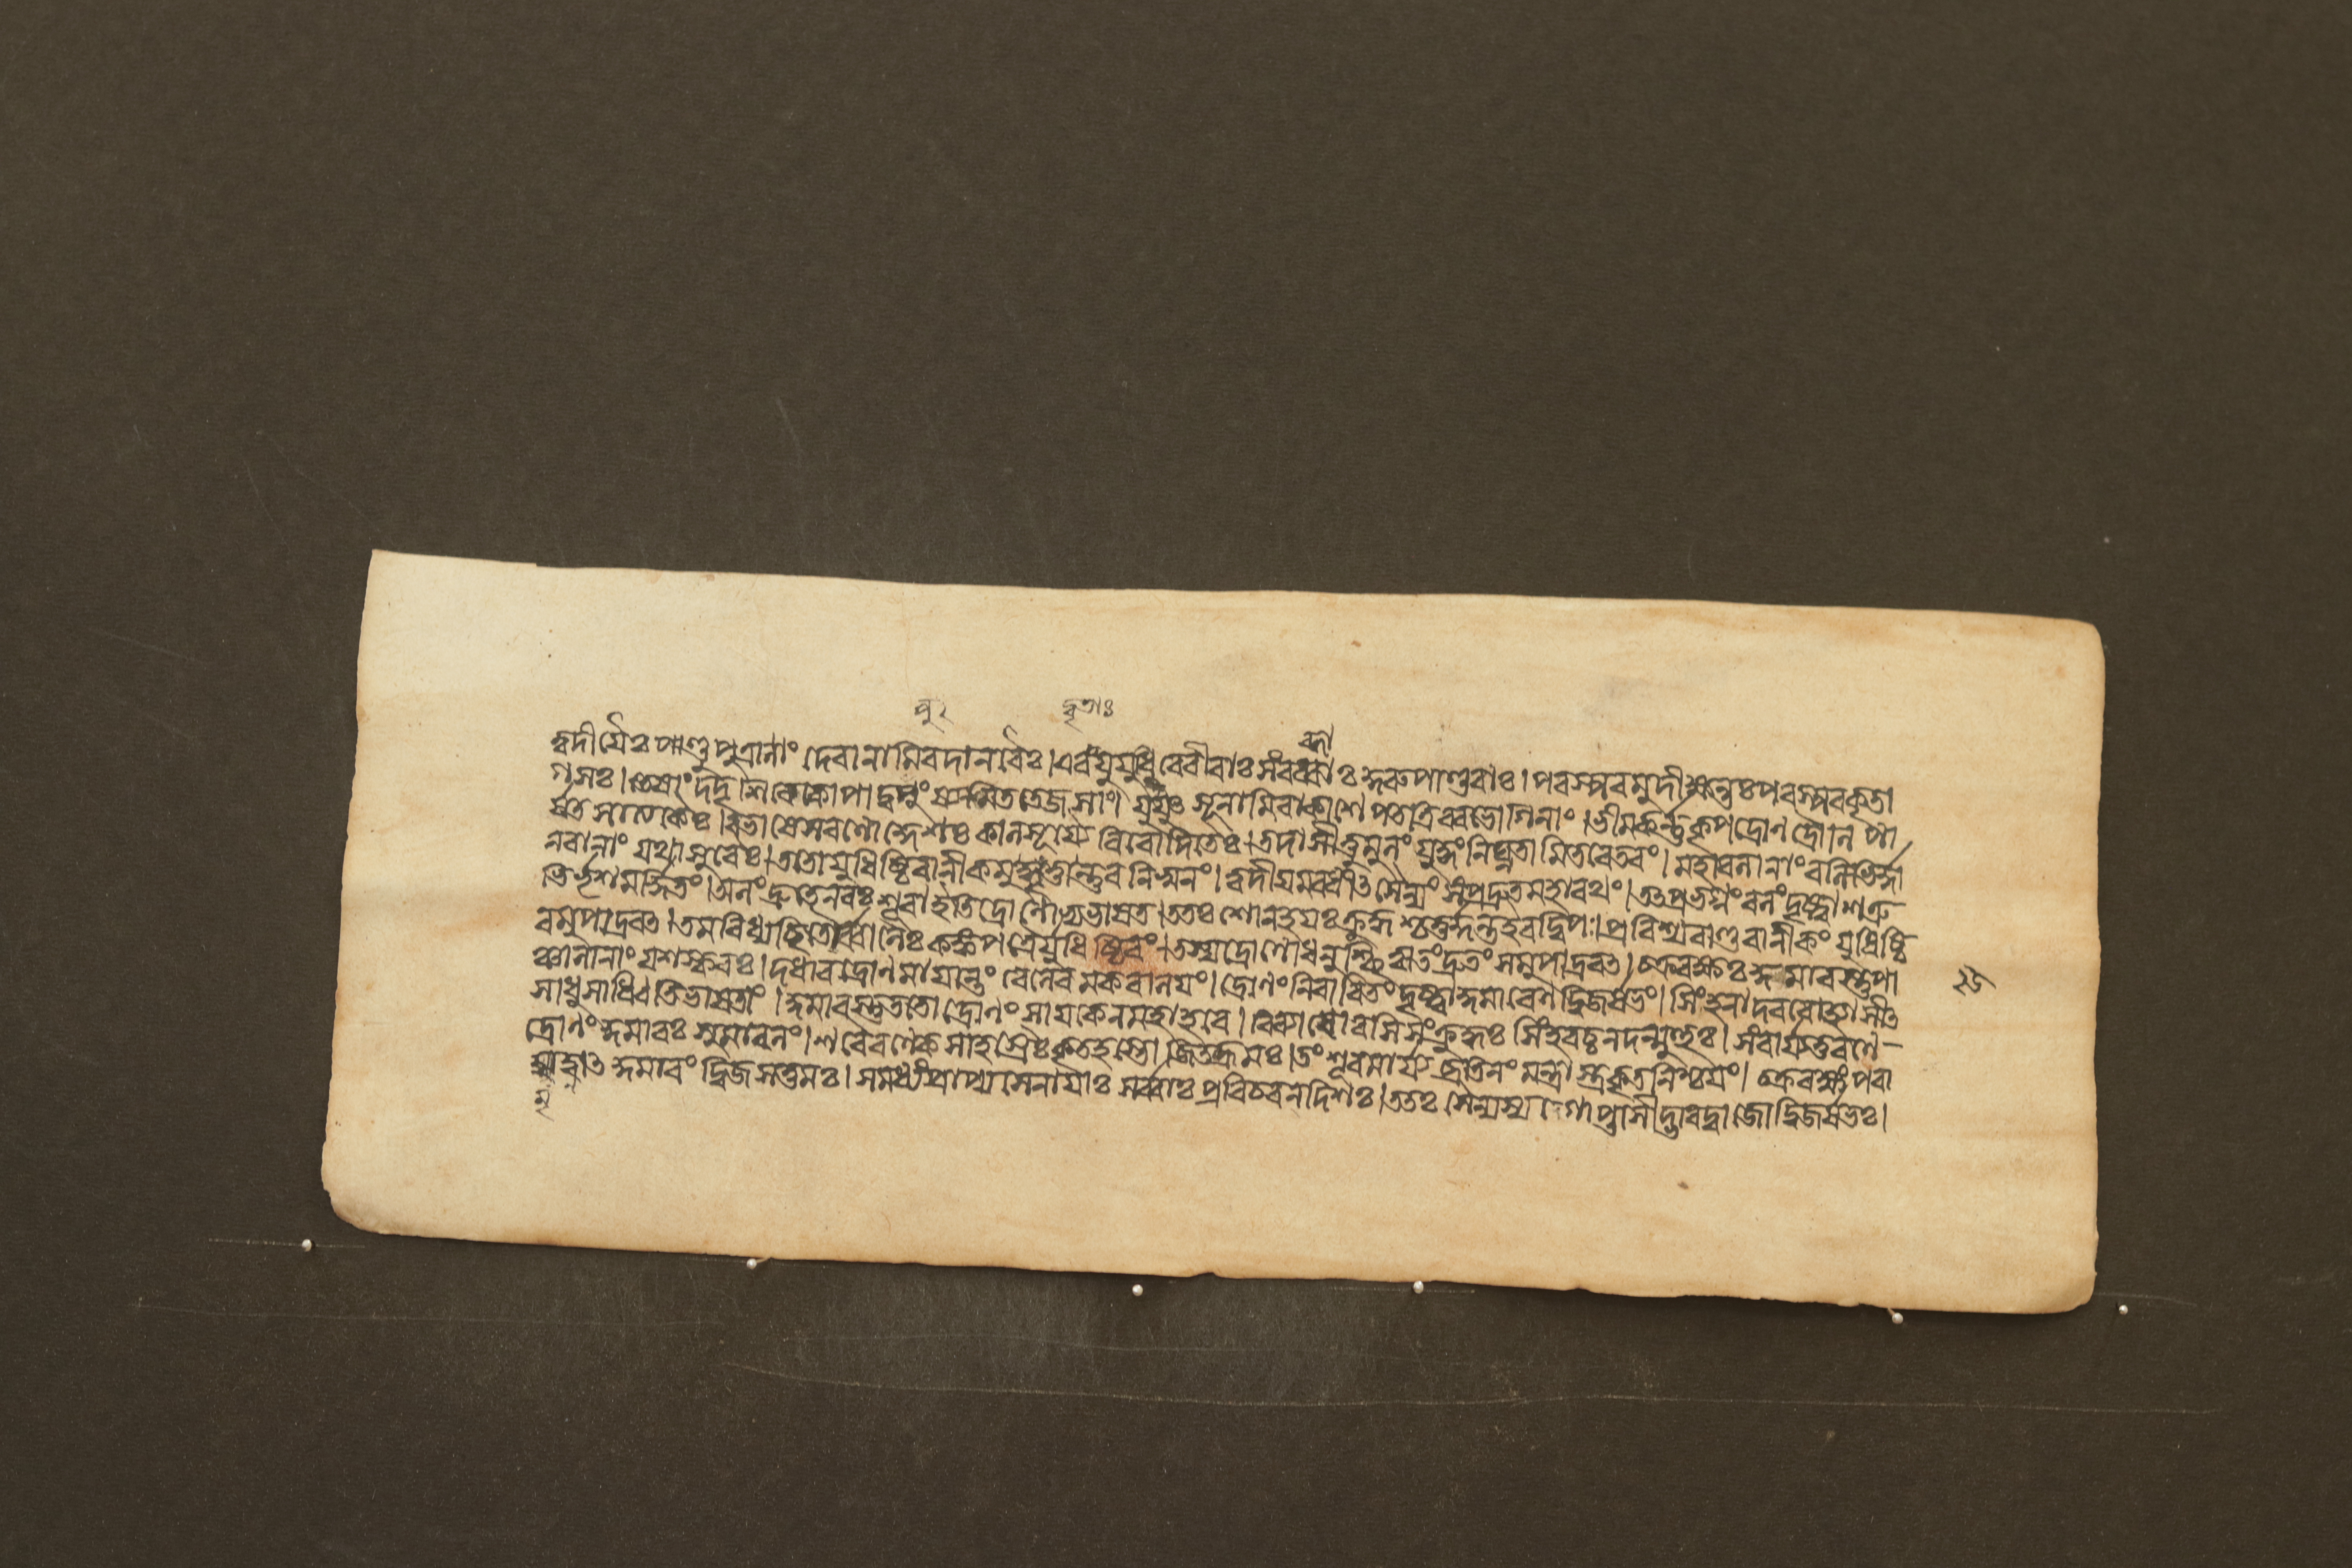 বু২ দ্বৃতাঃ
ব্ধা
ত্বদীয়ৈঃ পাণ্ডুপুত্রানাং দেবানামিবদানবৈঃ।এবংযুযুধিরেবীরাঃ সংরব্ধাঃ কুরুপাণ্ডবাঃ। পরস্পরমুদীক্ষন্তঃপরস্পরকৃতা
গসঃ।তেষাং দদৃশিরেকোপাদ্বপুংষ্যমিততেজসাং। যুযুৎসূনামিবাকাশে পততত্রিবরভোগিনাং।ভীমকর্ন্নকৃপদ্রোণদ্রৌনিপা
র্ষতসাত্যকৈঃ।বভাষেসরণোদ্দেশঃ কালসূর্যৈরিবোদিতৈঃ।তদাসীত্তুমুলং যুদ্ধংনিঘ্নতামিতরেতরং। মহাবলানাংবলিভির্দ্দা
নবানাং যথাসুরৈঃ।ততোযুধিষ্ঠিরানীকমুদ্ধূতার্ন্নবনিস্বনং।ত্বদীয়মবধীৎসৈন্যং সংপ্রদ্রুতমহারথং।তৎপ্রভগ্নংবলংদৃষ্ট্বাশত্রু
ভির্ভৃশমর্দ্দিতং।অলংদ্রুতেনবঃশূরাইতিদ্রোণোভ্যভাষত।ততঃ শোনহয়ঃক্রুদ্ধশ্চতুর্দ্দন্তইবদ্বিপঃ।প্রবিশ্যপাণ্ডবানীকং যুধিষ্ঠি
রমুপাদ্রবৎ।তমবিধ্যচ্ছিতৈর্ব্বানৈঃ কঙ্কপত্রৈর্যুধিষ্ঠিরং।তস্যদ্রোণোধনুশ্ছিত্বাতংদ্রুতংসমুপাদ্রবৎ।চক্ররক্ষঃকুমারস্তুপা
ঞ্চালানাং যশস্করঃ।দধারদ্রোণমায়ান্তং বেলেবমকরালয়ং।দ্রোণংনিবারিতংদৃষ্ট্বাকুমারেণদ্বিজর্ষভং।সিংহনাদরবোহ্যাসীৎ
সাধুসাধ্বিতিভাষতাং।কুমারস্তুততোদ্রোণং সায়কেনমহাহবে।বিব্যাধোরসিসংক্রুদ্ধঃ সিংহবচ্চনদন্মুহুঃ। সংবার্যতুরণে-
দ্রোণংকুমারঃ সুমহাবলং।শরৈরণেকসাহস্রৈঃকৃতহস্তোজিতক্লমঃ।তংশূরমার্যব্রতিনং মন্ত্রাস্ত্রকৃতনিশ্চয়ং।চক্ররক্ষংপরা
দ্বাৎ কুমারং দ্বিজসত্তমঃ। সমধ্যংপ্রাপ্যসেনায়াঃ সর্ব্বাঃ প্রবিচরনদিশঃ।ততঃ সৈন্যস্যগোপ্তাসীদ্ভারদ্বাজোদ্বিজর্ষভঃ।
২৬